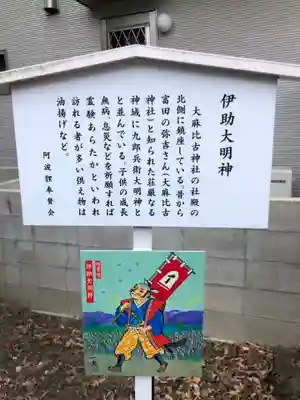 伊助大明神
大麻比古神社の社殿の
北側に鎮座している。昔から
富田の弥吉さん(大麻比古
神社)と知られた荘厳なる
神域に九郎兵衛大明神と
と並んでいる。子供の成長
無病、息災などを祈願すれば
霊験あらたかといわれ
訪れる者が多い供え物は
油揚げなど。
阿波狸奉賛会
伊助大明神